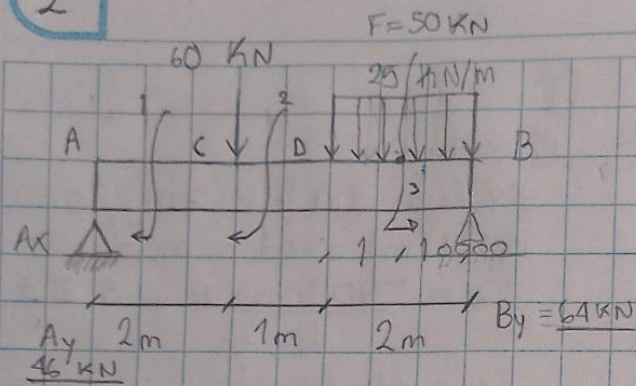 2
F = 50 KN
60 KN
25 KN/m
1
2
A
C
D
B
3
Ax
1 1
Ay 2m 1m 2m By = 64 KN
46 KN